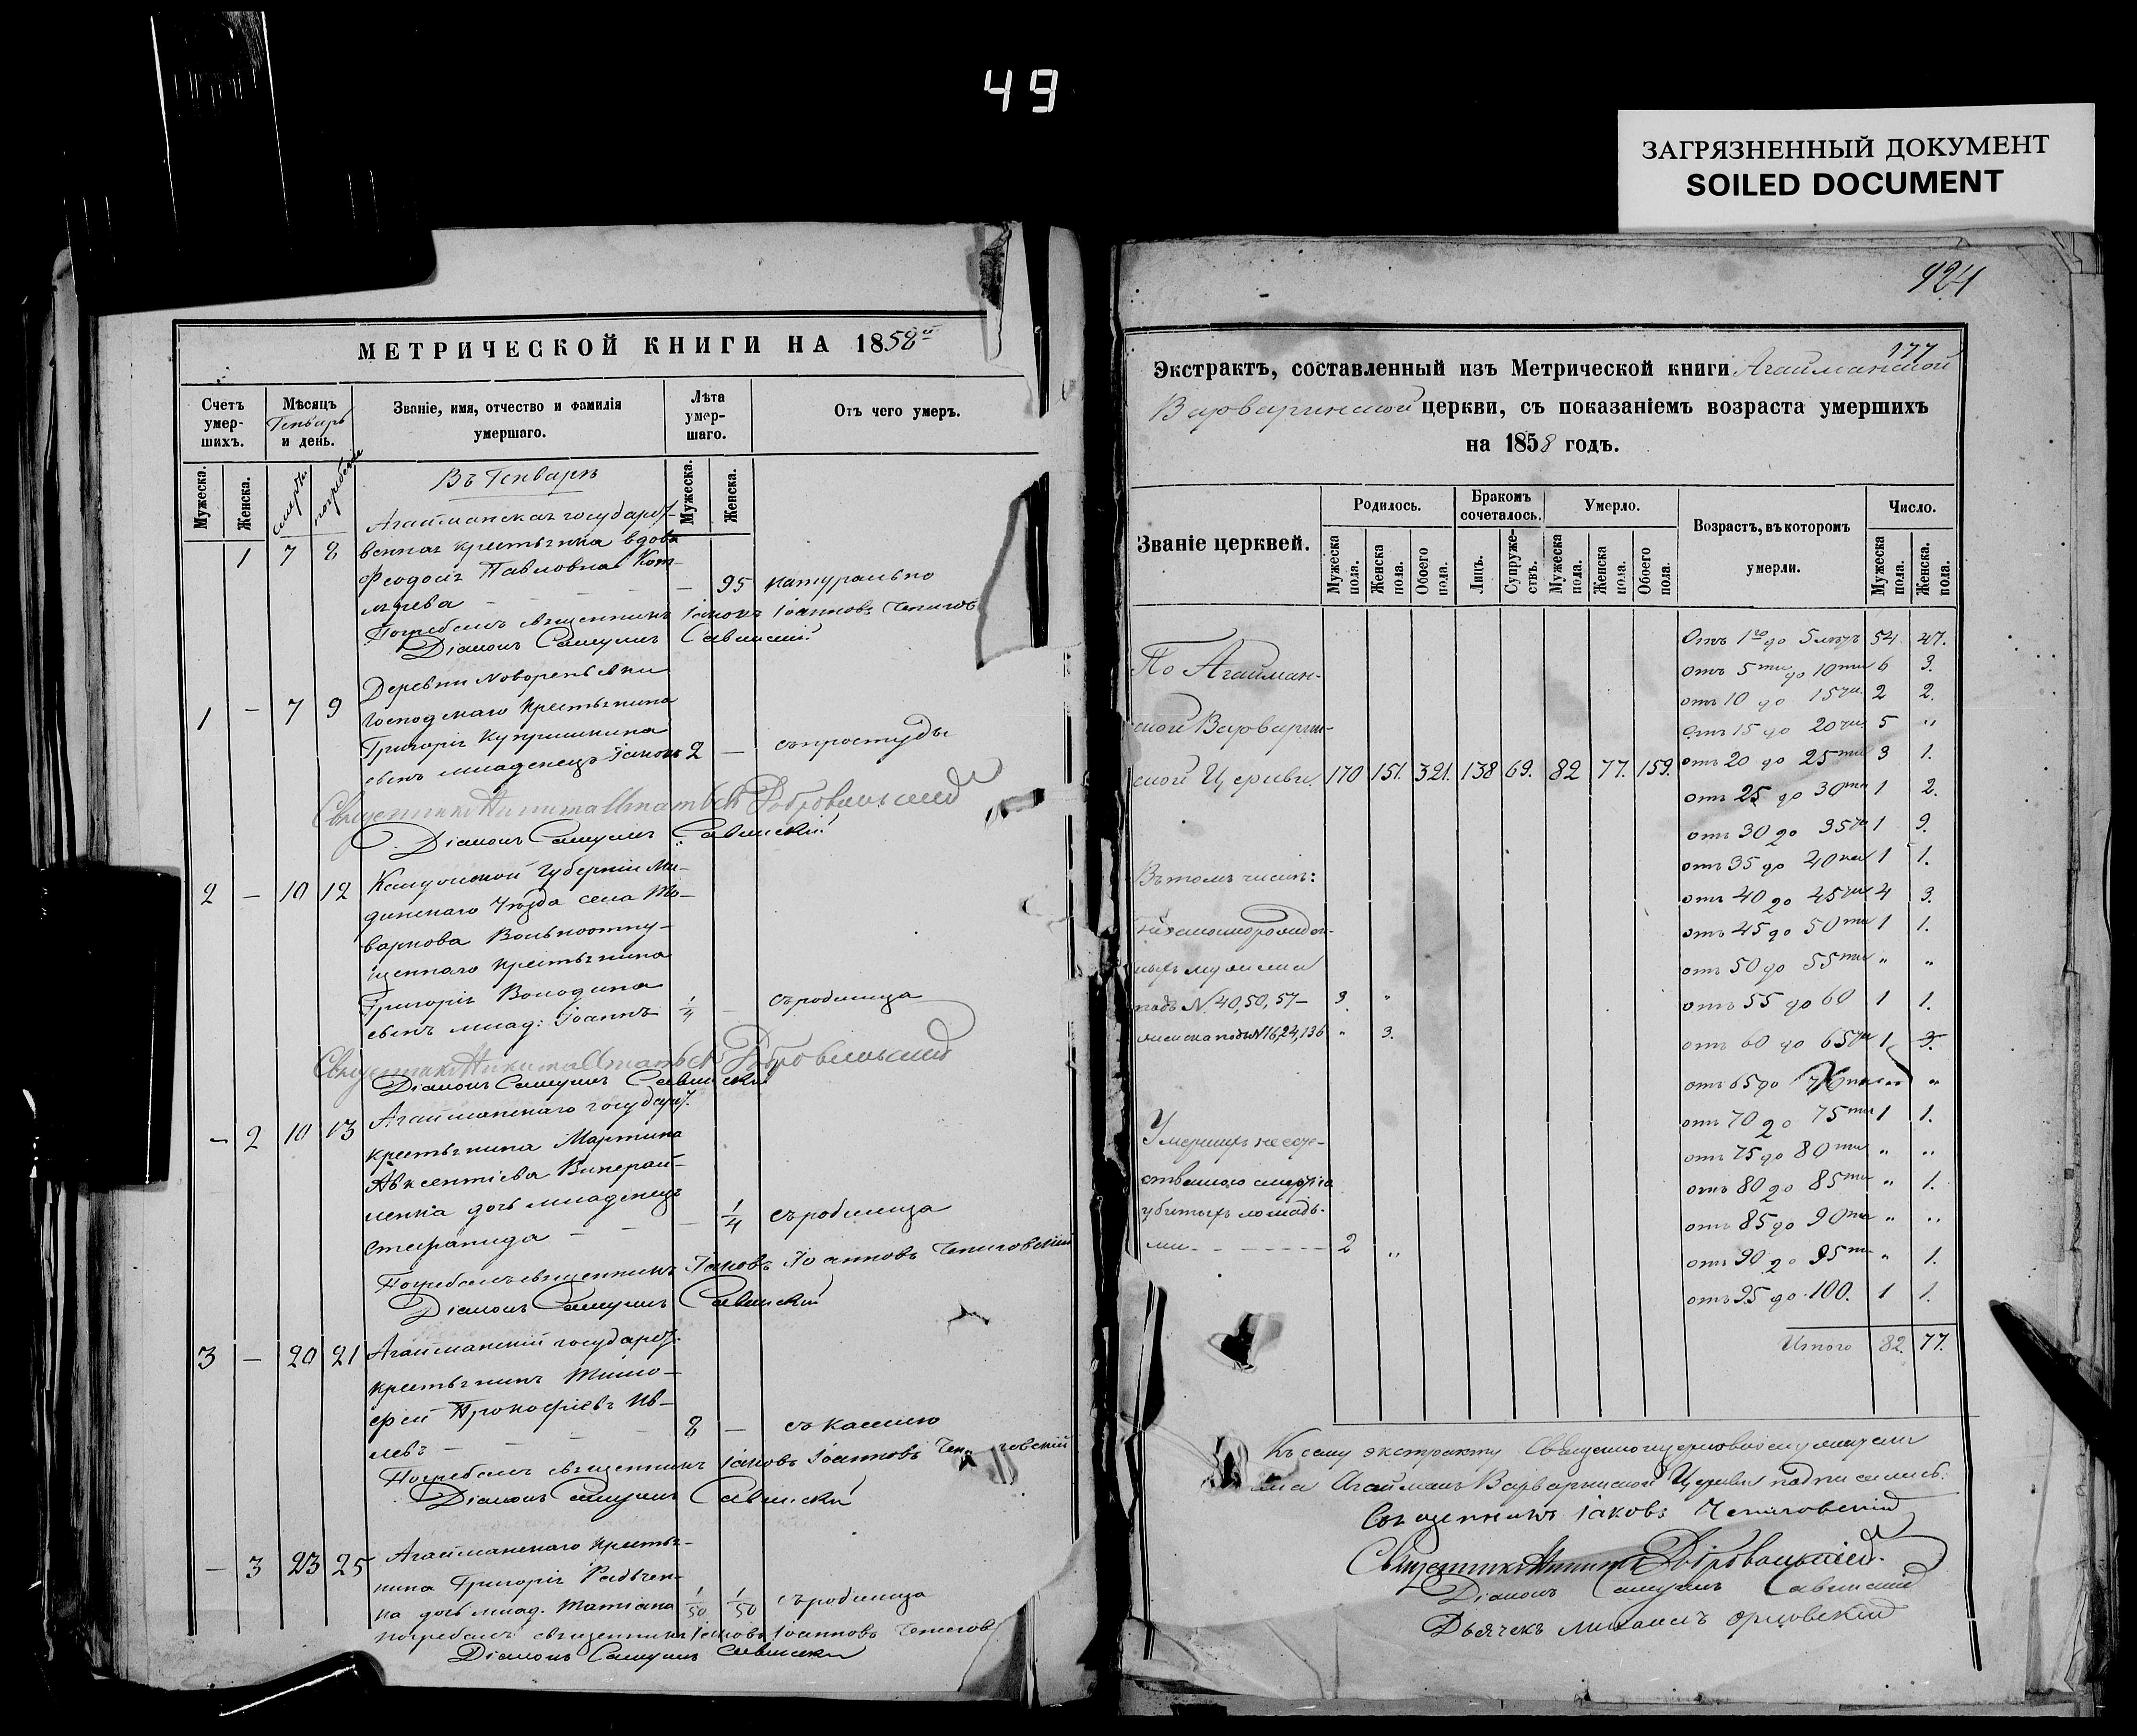 49
ЗАГРЯЗНЕННЫЙ ДОКУМЕНТ
SOILED DOCUMENT
МЕТРИЧЕСКОЙ КНИГИ НА 1858й
Счетъ умер-шихъ.
Мѣсяцъ Генварь и день.
Званіе, имя, отчество и фамилія умершаго.
Лѣта умер-шаго.
Отъ чего умеръ.
Мужеска. Женска. смерти погребенія
Въ Генварѣ
Мужеска. Женска.
Агайманская государст-
1 7 8 венная крестьянка вдова
Феодосія Павловна Кот-
лярева — 95 натурально
Погребалъ священникъ Іаковъ Іоанновъ Чепигов
Діаконъ Самуилъ Савинскій
Деревни Новорепьевки
1 — 7 9 господскаго крестьянина
Григорія Куприянина
сынъ младенецъ Іаковъ 2 — съ простуды
Священникъ Никита Добровольскій
Діаконъ Самуилъ Савинскій
2 — 10 12 Калужской губерніи Мѣ-
дынскаго Уѣзда села То-
варкова Вольноотпу-
щеннаго крестьянина
Григорія Володина
сынъ млад: Іоаннъ 1/4 — съ родимца
Священникъ Никита Добровольскій
Діаконъ Самуилъ Савинскій
— 2 10 13 Агайманскаго государст.
крестьянина Мартина
Авксентіева
ленка дочь младенецъ
Стефанида — — 1/4 съ родимца
Погребалъ священникъ Іаковъ Іоанновъ Чепиговскій
Діаконъ Самуилъ Савинскій
3 — 20 21 Агайманскій государст.
крестьянинъ Тимо-
фей Прокофіевъ Ив-
левъ — 8 — съ кашлю
Погребалъ священникъ Іаковъ Іоанновъ Чепиговскій
Діаконъ Самуилъ Савинскій
— 3 23 25 Агайманскаго крестья-
нина Григорія Рябчен-
ка дочь млад. Татіана 1/50 1/50 съ родимца
погребалъ священникъ Іаковъ Іоанновъ Чепигов
Діаконъ Самуилъ Савинскій
424
177
Экстрактъ, составленный изъ Метрической книги Агайманской
Варваринской церкви, съ показаніемъ возраста умершихъ
на 1858 годъ.
Званіе церквей.
Родилось.
Бракомъ сочеталось.
Умерло.
Возрастъ, въ которомъ умерли.
Число.
Мужеска пола. Женска пола. Обоего пола. Лицъ. Супруже-ствъ. Мужеска пола. Женска пола. Обоего пола. Мужеска пола. Женска. пола.
По Агайман-
ской Варварин-
ской Церкви. 170 151. 321. 138 69. 82 77. 159.
Въ томъ числѣ:
ныхъ мужска
подъ N. 40, 50, 57— 3 "
женска подъ N 16, 24, 136 " 3.
Умершихъ неесте-
ственною смертію
убитыхъ лошадь-
ми - - - - 2 "
Отъ 1го до 5 лѣтъ 54. 47.
отъ 5ти до 10ти 6 3.
отъ 10 до 15ти 2 2.
отъ 15 до 20ти 5 "
отъ 20 до 25ти 3 1.
отъ 25 до 30ти 1 2.
отъ 30 до 35ти 1 9.
отъ 35 до 40ка 1 1.
отъ 40 до 45ти 4 3.
отъ 45 до 50ти 1 1.
отъ 50 до 55ти " "
отъ 55 до 60 1 1.
отъ 60 до 65ти 1 3.
отъ 65 до 70ти " "
отъ 70 до 75ти 1 1.
отъ 75 до 80ти " "
отъ 80 до 85ти " 1.
отъ 85 до 90та " "
отъ 90 до 95ти " 1.
отъ 95 до 100. 1 1.
Итого 82. 77.
Къ сему экстракту Священноцерковнослужители
села Агайманъ Варваринской Церкви подписались:
Священникъ Іаковъ Чепиговскій
Священникъ Никита Добровольскій.
Діаконъ Самуилъ Савинскій
Дьячекъ Михаилъ Орловскій